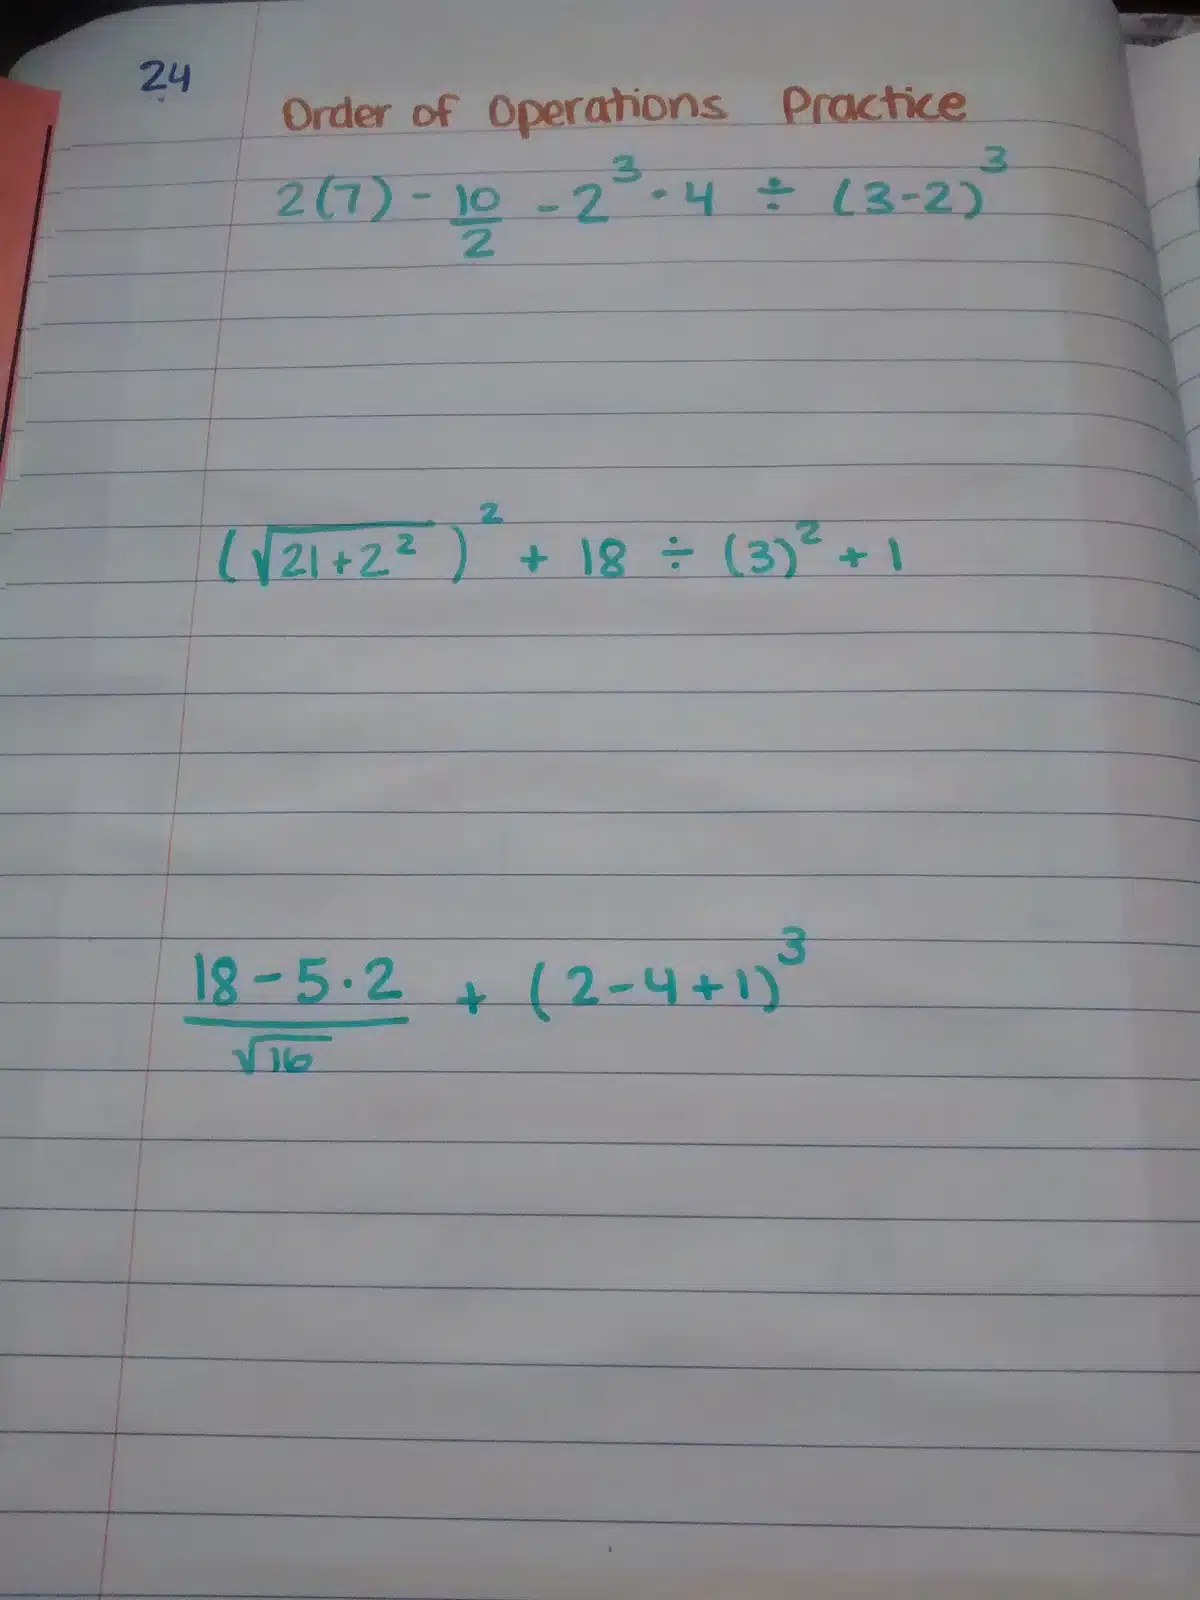 24
Order of Operations Practice
2(7) - 10/2 - 2³ · 4 ÷ (3-2)³
(√(21+2²))² + 18 ÷ (3)² + 1
(18-5·2)/√16 + (2-4+1)³